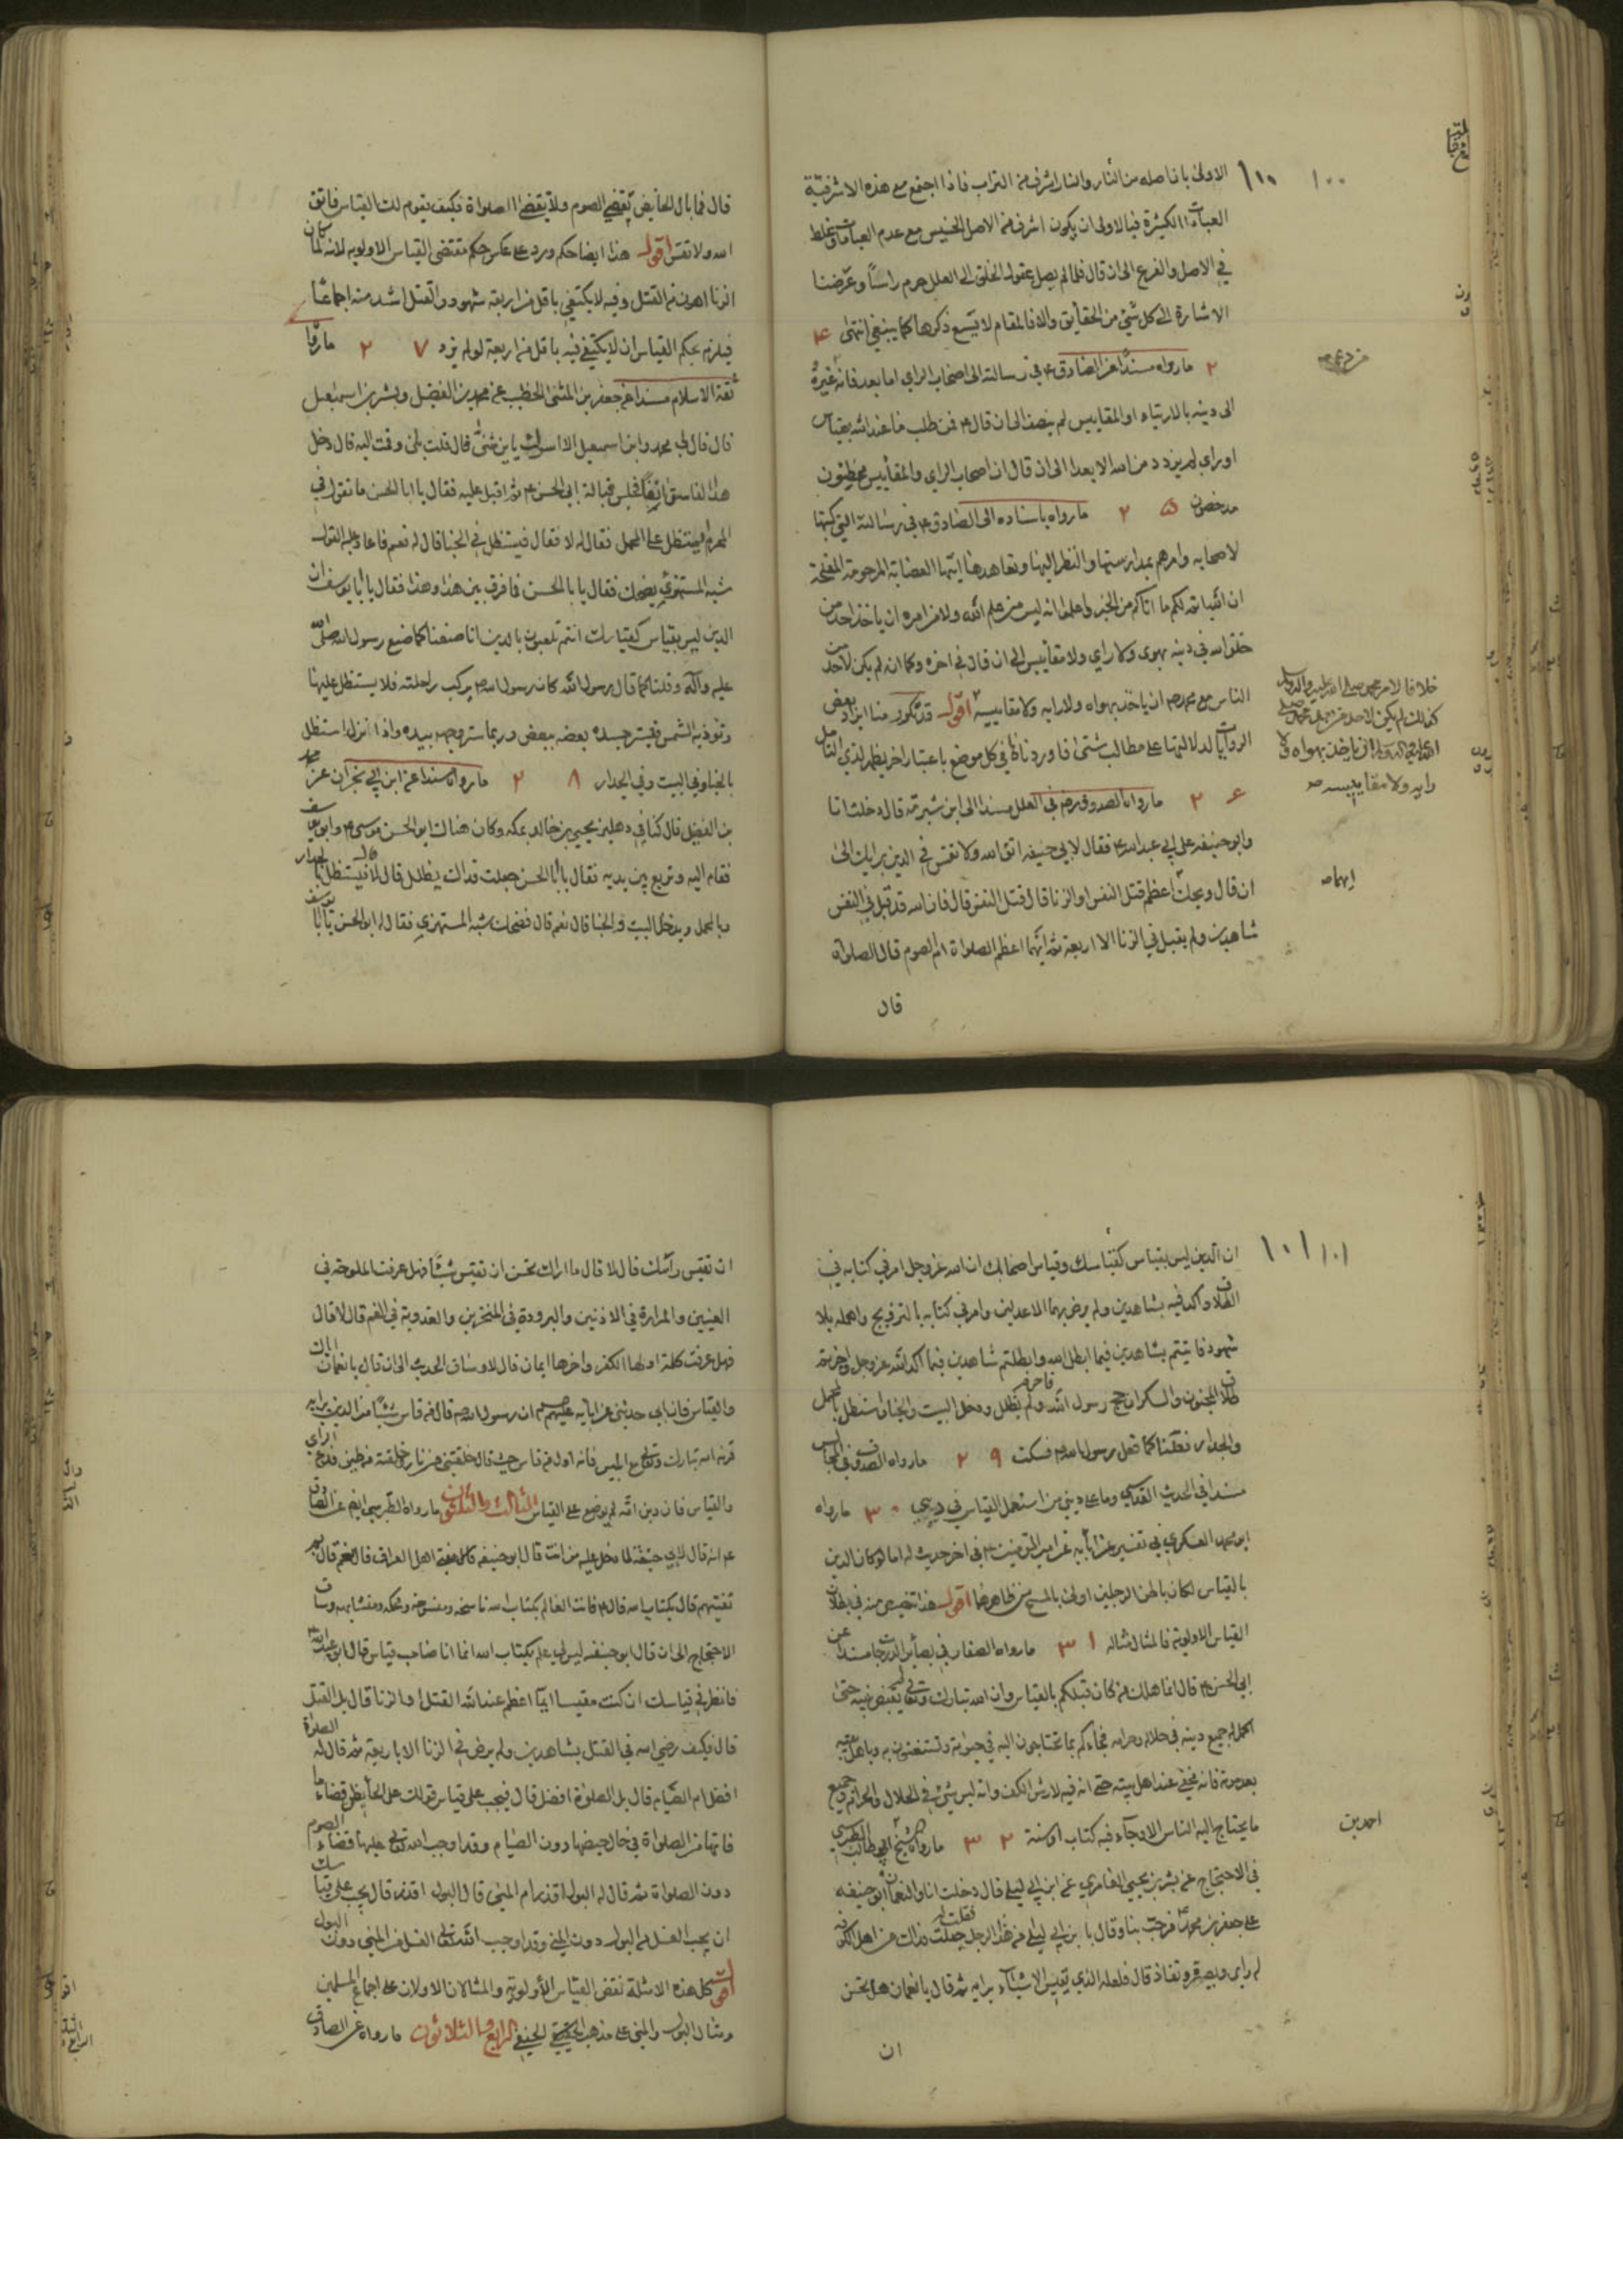 ١٠٠
الاولى بان اصله من النار والنار اشرف من التراب فاذا اجتمع مع هذه الاشرفية
العبادات الكثيرة فبالاولى ان يكون اشرف من الاصل الخسيس مع عدم العبادات وغلط
في الاصل والفرع الى ان قال فلما لم يصل عقول الخلق الى العلل حرم راسا وغرضنا
الاشارة الى كل شيء من الحقايق والا فالمقام لا يسع ذكرها كما ينبغي انتهى ٢٤
ما رواه مسندا عن الصادق ع في رسالته الى اصحاب الراي اما بعد فانه غيره
الى دينه بالارتياء او المقاييس لم ينصف الى ان قال ع فمن طلب ما عند الله بقياس
او راي لم يزدد من الله الا بعدا الى ان قال ان اصحاب الراي والمقاييس مخطئون
مدحضون ٢٥ ما رواه باسناده الى الصادق ع في رسالته التي كتبها
لاصحابه وامرهم بمدارستها والنظر اليها وتعاهدها ايتها العصابة المرحومة المفلحة
ان الله اتم لكم ما اتاكم من الخير واعلموا انه ليس من علم الله ولا من امره ان ياخذ احد من
خلق الله في دينه بهوى ولا راي ولا مقاييس الى ان قال في اخره وكما ان لم يكن لاحد من
الناس مع محمد ص ان ياخذ بهواه ولا رايه ولا مقاييسه اقول قد تكرر منا ايراد بعض
الروايات لدلالتها على مطالب شتى فاوردناه في كل موضع باعتبار اخر يظهر لذي التامل
٢٦ ما رواه الصدوق ره في العلل مسندا الى ابن شبرمة قال دخلت انا
وابو حنيفه على ابي عبد الله ع فقال لابي حنيفه اتق الله ولا تقس في الدين برايك الى
ان قال ويحك ايهما اعظم قتل النفس او الزنا قال قتل النفس قال فان الله قد قبل في النفس
شاهدين ولم يقبل في الزنا الا اربعة ثم ايهما اعظم الصلوة ام الصوم قال الصلوة
قال
ايهما ص
قال فما بال الحايض تقضي الصوم ولا تقضي الصلواة فكيف يقوم لك القياس فاتق
الله ولا تقس اقول هذا ايضا حكم ورد على عكس حكم مقتضى القياس الاولويه لانه لما كان
الزنا اهون من القتل وفيه لا يكتفي باقل من اربعة شهود والقتل اشد منه اجماعا
فيلزم بحكم القياس ان لا يكتفي فيه باقل من اربعة لو لم يزد ٢٧ ما رواه
ثقة الاسلام مسندا عن جعفر بن المثنى الخطيب عن محمد بن الفضيل وبشر بن اسمعيل
قال قال لي محمد وابن اسمعيل الا اسرك يابن مثنى قال قلت بلى وقمت اليه قال دخل
هذا الفاسق انفا فجلس قبالة ابي الحسن ع ثم اقبل عليه فقال يا ابا الحسن ما تقول في
المحرم ايستظل على المحمل فقال له لا فقال فيستظل في الخبا قال له نعم فاعاد عليه القول
شبه المستهزئ يضحك فقال يا ابا الحسن فما فرق بين هذا وهذا فقال يا ابا يوسف ان
الدين ليس بقياس كقياسك انتم تلعبون بالدين انا صنعنا كما صنع رسول الله صلى
عليه وآله وقلنا كما قال رسول الله كان رسول الله ص يركب راحلته فلا يستظل عليها
وتؤذيه الشمس فيستر جسده بعضه ببعض وربما ستر وجهه بيده واذا نزل استظل
بالخبا وفي البيت وفي الجدار ٢٨ ما رواه مسندا عن ابن ابي نجران عن محمد
بن الفضيل قال كنا في دهليز يحيى بن خالد بمكه وكان هناك ابو الحسن موسى ع وابو يوسف
فقام اليه وتربع بين يديه فقال يا ابا الحسن جعلت فداك يظلل قال لا قال فيستظل بالجدار
وبالمحمل ويدخل البيت والخبا قال نعم قال فضحك شبه المستهزئ فقال له ابو الحسن يا ابا يوسف
١٠١
ان الدين ليس بقياس كقياسك وقياس اصحابك ان الله عز وجل امر في كتابه في
الطلاق واكد فيه بشاهدين ولم يرض بهما الا عدلين وامر في كتابه بالتزويج واهمله بلا
شهود فاتيتم بشاهدين فيما ابطل الله وابطلتم شاهدين فيما اكد الله عز وجل واجزتم
طلاق المجنون والسكران حج رسول الله فاحرم ولم يظلل ودخل البيت والخبا واستظل بالمحمل
والجدار فقلنا كما فعل رسول الله ص فسكت ٢٩ ما رواه الصدوق في المجالس
مسندا في الحديث القدسي وما على ديني من استعمل القياس في ديني ٣٠ ما رواه
ابو محمد العسكري في تفسيره عن ابائه عن امير المؤمنين ع في اخر حديث له اما لو كان الدين
بالقياس لكان باطن الرجلين اولى بالمسح من ظاهرهما اقول هذا تخصيص منه في بطلان
القياس الاولوية فالمثال مثاله ٣١ ما رواه الصفار في بصائر الدرجات مسندا عن
ابي الحسن ع قال انما هلك من كان قبلكم بالقياس وان الله تبارك وتعالى لم يقبض نبيه حتى
اكمل له جميع دينه في حلاله وحرامه فجاءكم بما تحتاجون اليه في حيوته وتستغنون به وباهل بيته
بعد موته فانه مخفي عند اهل بيته حتى انه فيه لارش الكف وانه ليس شيء في الحلال والحرام وجميع
ما يحتاج اليه الناس الا وجاء فيه كتاب او سنة ٣٢ ما رواه الشيخ ابي طالب الطبرسي
في الاحتجاج عن بشر بن يحيى العامري عن ابن ابي ليلى قال دخلت انا والنعمان ابو حنيفه
على جعفر بن محمد ع فرحب بنا وقال يا بن ابي ليلى من هذا الرجل فقلت جعلت فداك من اهل الكوفه
له راي وبصيرة ونفاذ قال فلعله الذي يقيس الاشياء برايه ثم قال يا نعمان هل تحسن
ان
احمد بن
ان تقيس راسك قال لا قال ما اراك تحسن ان تقيس شيئا فهل عرفت الملوحة في
العينين والمرارة في الاذنين والبرودة في المنخرين والعذوبة في الفم قال لا قال
فهل عرفت كلمة اولها الكفر واخرها ايمان قال لا وساق الحديث الى ان قال يا نعمان اياك
والقياس فان ابي حدثني عن ابائه عليهم السلام ان رسول الله ص قال من قاس شيئا من الدين برايه
قرنه الله تبارك وتعالى مع ابليس فانه اول من قاس حيث قال خلقتني من نار وخلقته من طين فدع الراي
والقياس فان دين الله لم يوضع على القياس الثالث والثلثون ما رواه الطبرسي ايضا عن الصادق
ع انه قال لابي حنيفة لما دخل عليه من انت قال ابو حنيفه قال مفتي اهل العراق قال نعم قال بم
تفتيهم قال بكتاب الله قال ع فانت العالم بكتاب الله ناسخه ومنسوخه ومحكمه ومتشابهه وساق
الاحتجاج الى ان قال ابو حنيفه ليس لي علم بكتاب الله انما انا صاحب قياس قال ابو عبد الله
فانظر في قياسك ان كنت مقيسا ايما اعظم عند الله القتل او الزنا قال بل القتل
قال فكيف رضي الله في القتل بشاهدين ولم يرض في الزنا الا باربعة ثم قال له الصلوة
افضل ام الصيام قال بل الصلوة افضل قال فيجب على قياس قولك على الحايض قضاء ما
فاتها من الصلواة في حال حيضها دون الصيام وقد اوجب الله تعالى عليها قضاء الصوم
دون الصلواة ثم قال له البول اقذر ام المني قال البول اقذر قال يجب على قياسك
ان يجب الغسل من البول دون المني وقد اوجب الله تعالى الغسل من المني دون البول
اقول كل هذه الامثلة نقض القياس الأولوية والمثالان الاولان على اجماع المسلمين
ومثال البول والمني على مذهب الحنفي الرابع والثلاثون ما رواه عن الصادق